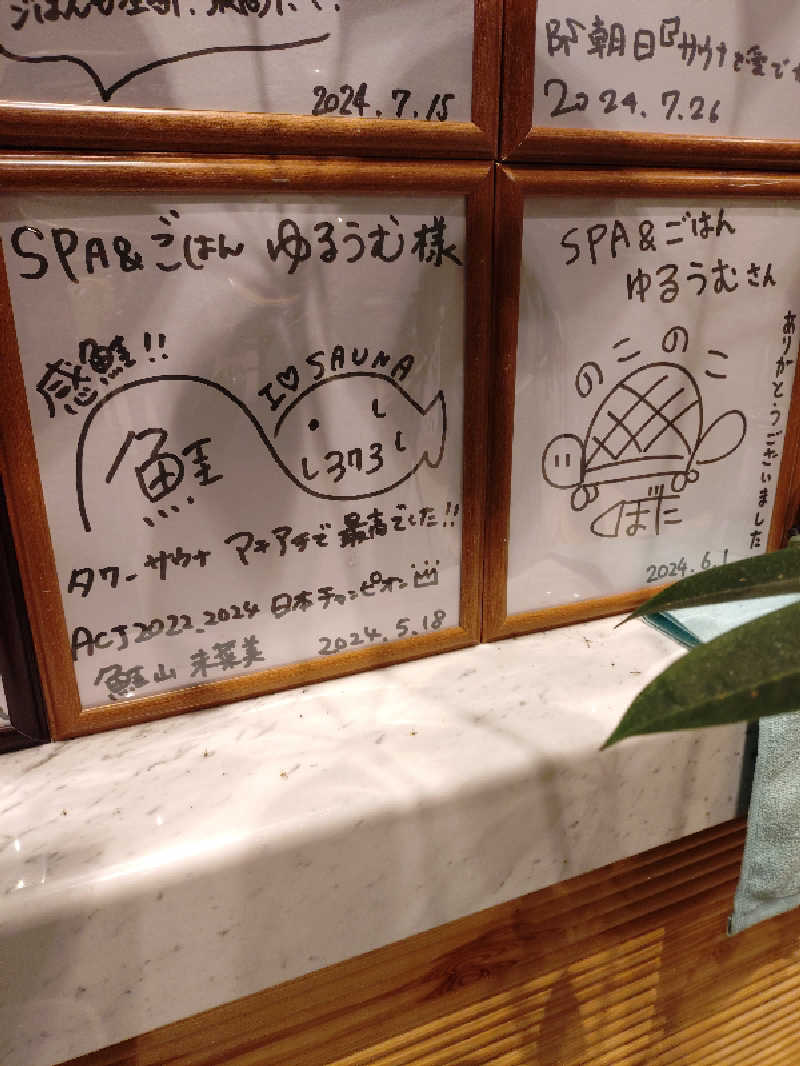 2024.7.15
朝日
サウナと愛で
2024.7.26
SPA&ごはん ゆるうむ様
感鮭!!
I♡SAUNA
鮭
し373し
タワーサウナ アチアチで 最高でした!!
ACJ2022.2024 日本チャンピオン
鮭山 未菜美 2024.5.18
SPA&ごはん
ゆるうむさん
のこのこ
ありがとうございました
くぼた
2024.6.1